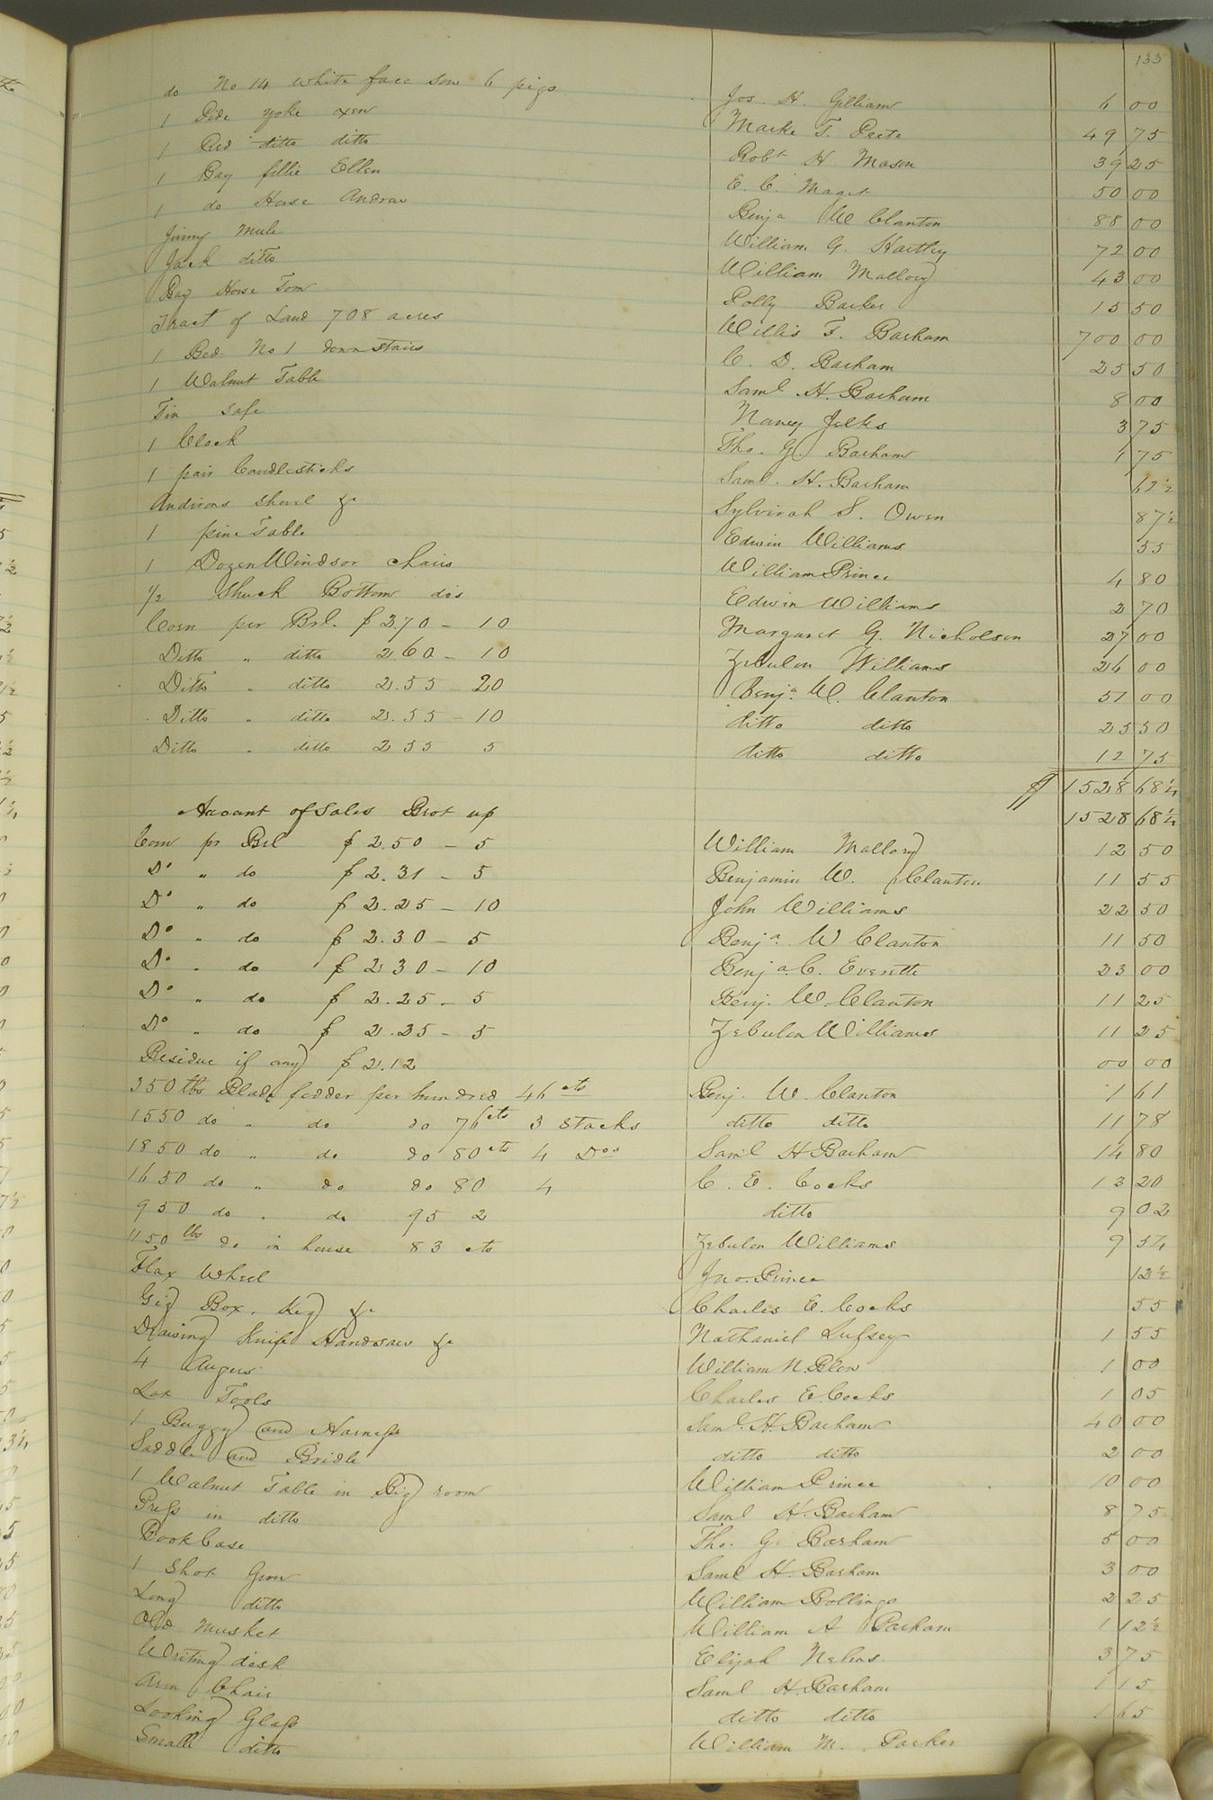 133
do No 14 white face sow 6 pigs Jos. H. Gilliam 6 00
1 Pide yoke oxen Marke T. Peete 49 75
1 Red ditto ditto Robt H Mason 39 25
1 Bay fillie Ellen E. C. Maget 50 00
1 do Horse Andrew Benja W Clanton 88 00
Jinny Mule William G. Hartly 72 00
Jack ditto William Mallory 43 00
Bay Horse Tom Polly Barker 15 50
Tract of Land 708 acres Willis T. Barham 700 00
1 Bed No 1 down stairs C. D. Barham 25 50
1 Walnut Table Saml H. Barham 8 00
Tin safe Nancy Jelks 3 75
1 Clock Tho. G. Barham 1 75
1 pair Candlesticks Saml. H. Barham 62½
Andirons shovel &c Sylvirah S. Owen 87½
1 pine Table Edwin Williams 55
1 Dozen Windsor chairs William Prince 4 80
1/2 Shuck Bottom do's Edwin Williams 2 70
Corn per Brl. $ 2.70 - 10 Margaret G. Nicholson 27 00
Ditto " ditto 2.60 - 10 Zebulon Williams 26 00
Ditto " ditto 2.55 - 20 Benja. W. Clanton 51 00
Ditto " ditto 2.55 - 10 ditto ditto 25 50
Ditto " ditto 2 55 5 ditto ditto 12 75
$ 1528 68¼
Account of Sales Brot up 1528 68¼
Corn pr Brl $ 2.50 - 5 William Mallory 12 50
Do " do $ 2.31 - 5 Benjamin W. Clanton 11 55
Do " do $ 2.25 - 10 John Williams 22 50
Do " do $ 2.30 - 5 Benja. W Clanton 11 50
Do " do $ 2 30 - 10 Benja. C. Everette 23 00
Do " do $ 2.25 - 5 Benj. W. Clanton 11 25
Do " do $ 2.25 - 5 Zebulon Williams 11 25
Residue if any $ 2.12 00 00
350 lbs Blade fodder per hundred 46 cts Benj. W. Clanton 1 61
1550 do " do do 76 cts 3 Stacks ditto ditto 11 78
1850 do " do do 80 cts 4 Dos Saml H Barham 14 80
1650 do " do do 80 4 C. E. Cocks 13 20
950 do " do 95 2 ditto 9 02
1150 lbs do in house 83 cts Zebulon Williams 9 54
Flax Wheel Jno. Prince 12½
Gig Box. Keg &c Charles E. Cocks 55
Drawing Knife Handsaw &c Nathaniel Lufsey 1 55
4 Augurs William N. Blow 1 00
Lot Tools Charles E. Cocks 1 05
1 Buggy and Harness Saml. H. Barham 40 00
Saddle and Bridle ditto ditto 2 00
1 Walnut Table in Big room William Prince 10 00
Press in ditto Saml H. Barham 8 75
Book Case Tho. G. Barham 5 00
1 Shot Gun Saml H. Barham 3 00
Long ditto William Rollings 2 25
Old Musket William A Parham 1 12½
Writing desk Elijah 3 75
Arm Chair Saml H. Barham 1 15
Looking Glass ditto ditto 1 65
Small ditto William M. Parker